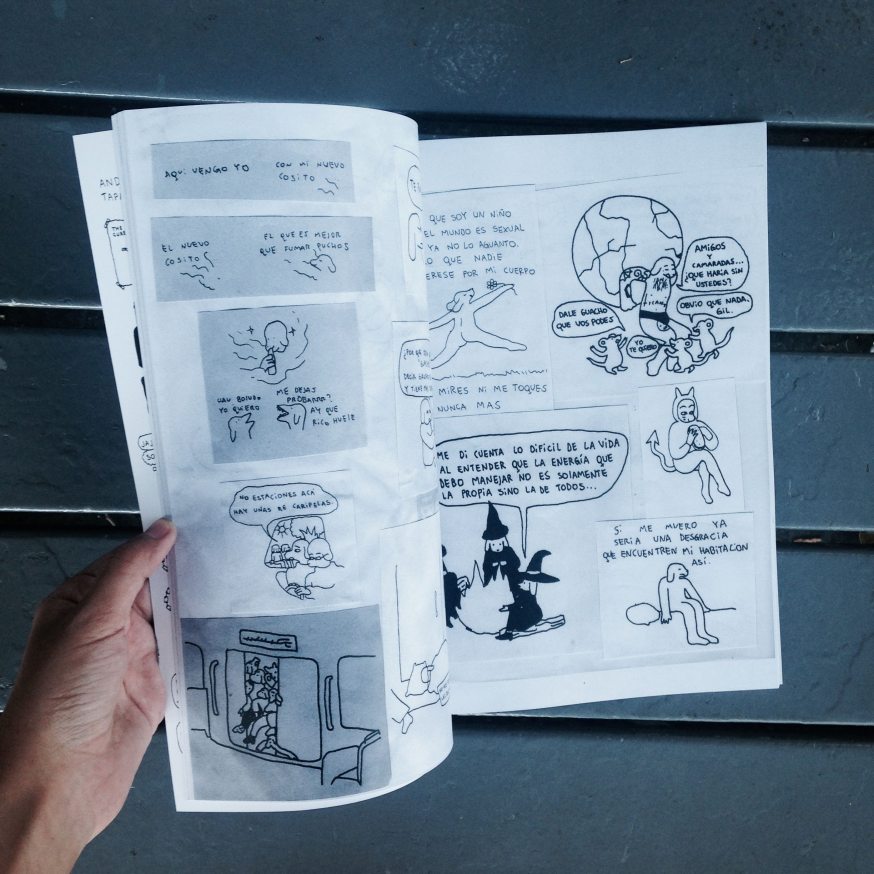 AND
TAPI
THE
CURE
AQUI VENGO YO
CON MI NUEVO
COSITO
EL NUEVO
COSITO
EL QUE ES MEJOR
QUE FUMAR PUCHOS
UAU BOLUDO
YO QUIERO
ME DEJAS
PROBARRR?
AY QUE
RICO HUELE
NO ESTACIONES ACÁ
HAY UÑAS RE CARIPELAS.
TE
QUE SOY UN NIÑO
EL MUNDO ES SEXUAL
YA NO LO AGUANTO.
LO QUE NADIE
ERESE POR MI CUERPO
MIRES NI ME TOQUES
NUNCA MAS
AMIGOS
Y
CAMARADAS...
¿QUE HARIA SIN
USTEDES?
DALE GUACHO
QUE VOS PODES
YO
TE QUIERO
OBVIO QUE NADA,
GIL.
ME DI CUENTA LO DIFICIL DE LA VIDA
AL ENTENDER QUE LA ENERGÍA QUE
DEBO MANEJAR NO ES SOLAMENTE
LA PROPIA SINO LA DE TODOS...
SI ME MUERO YA
SERIA UNA DESGRACIA
QUE ENCUENTREN MI HABITACION
ASÍ.